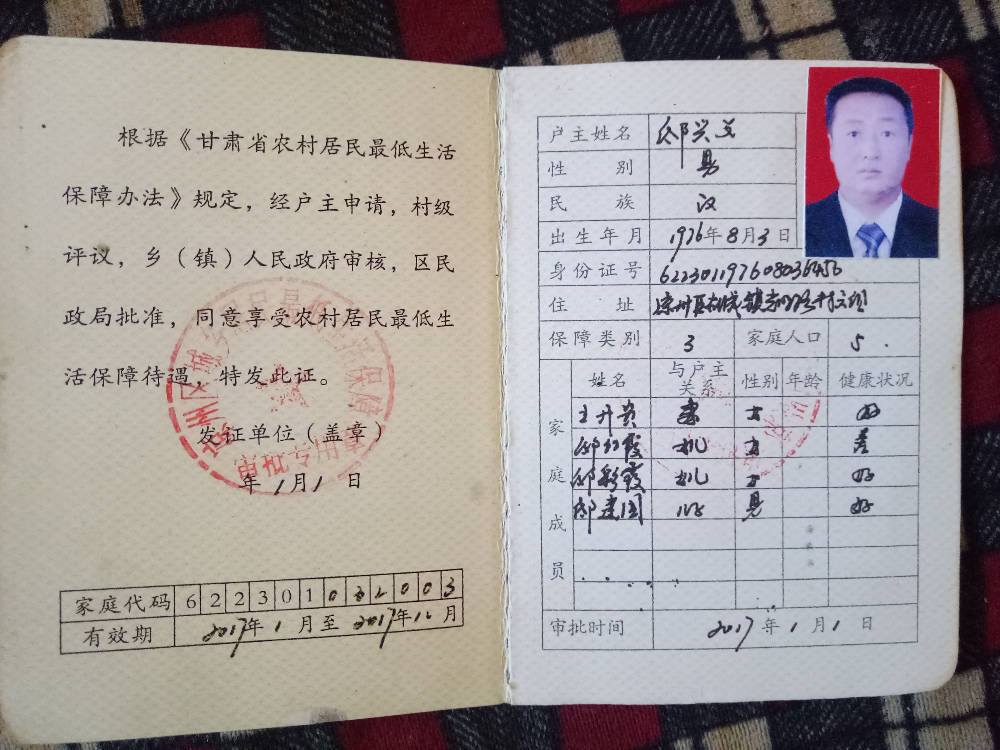 根据《甘肃省农村居民最低生活
保障办法》规定，经户主申请，村级
评议，乡（镇）人民政府审核，区民
政局批准，同意享受农村居民最低生
活保障待遇，特发此证。
发证单位（盖章）
年1月1日
审批专用章
家庭代码 6 2 2 3 0 1 0 3 2 0 0 3
有效期 2017年1月至2017年12月
户主姓名 邴兴文
性别 男
民族 汉
出生年月 1976年8月3日
身份证号 622301197608036456
住址 凉州区
保障类别 3 家庭人口 5
姓名 与户主关系 性别 年龄 健康状况
家庭成员
王升贵 妻 女 好
邴红霞 女 差
邴彩霞 女 好
邴建国 男 好
审批时间 2017年1月1日